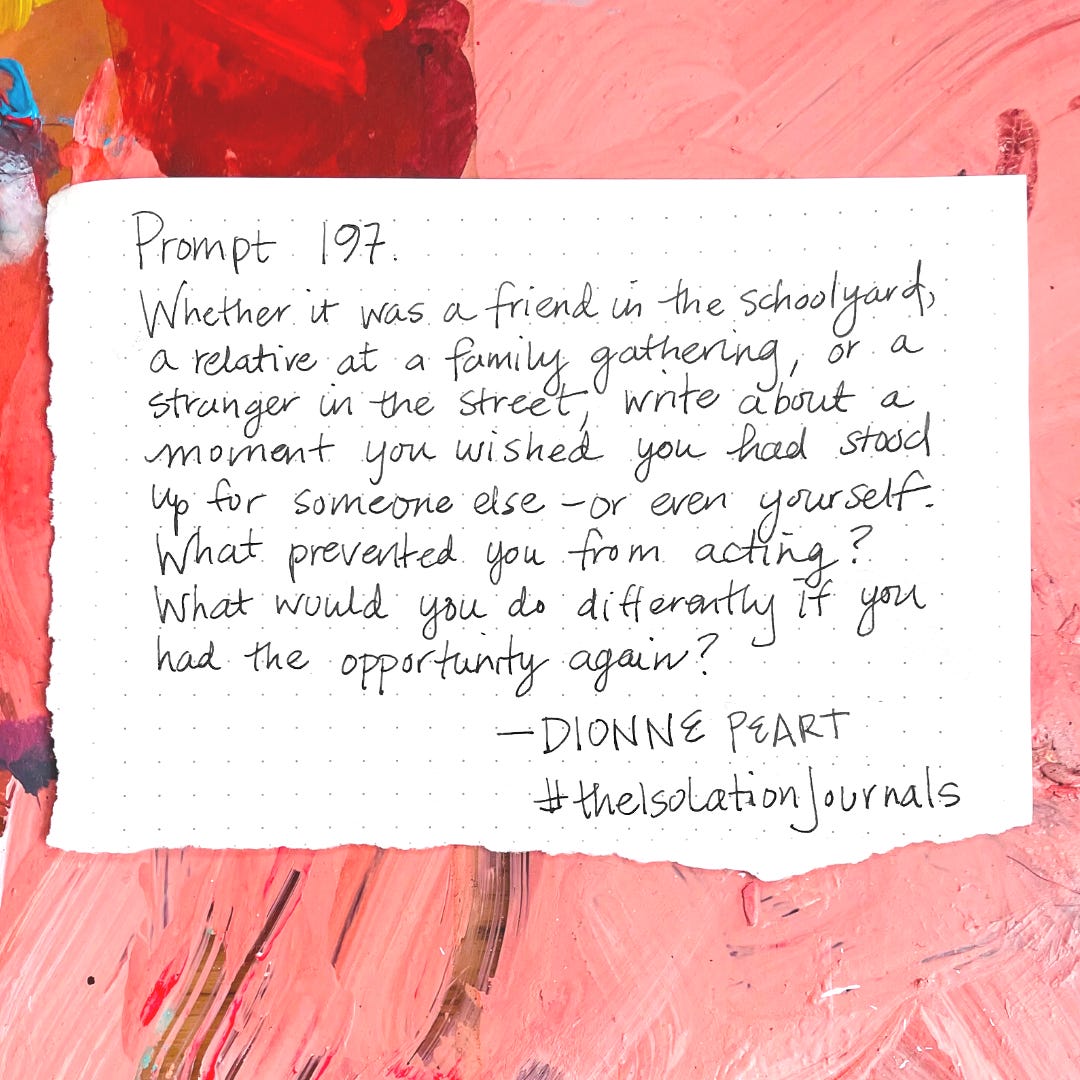 Prompt 197.
Whether it was a friend in the schoolyard,
a relative at a family gathering, or a
stranger in the street, write about a
moment you wished you had stood
up for someone else – or even yourself.
What prevented you from acting?
What would you do differently if you
had the opportunity again?
— DIONNE PEART
#theIsolationJournals